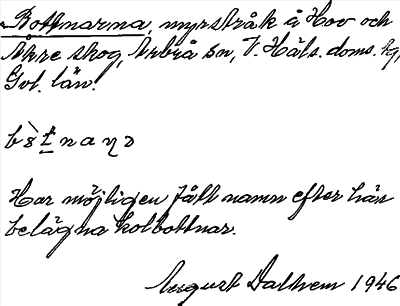 Bottnarna, myrstråk å Hov och
Åkre skog, Arbrå sn, V. Häls. doms. hg,
Gvl. län.
Har möjligen fått namn efter här
belägna kolbottnar.
August Dalhem 1946